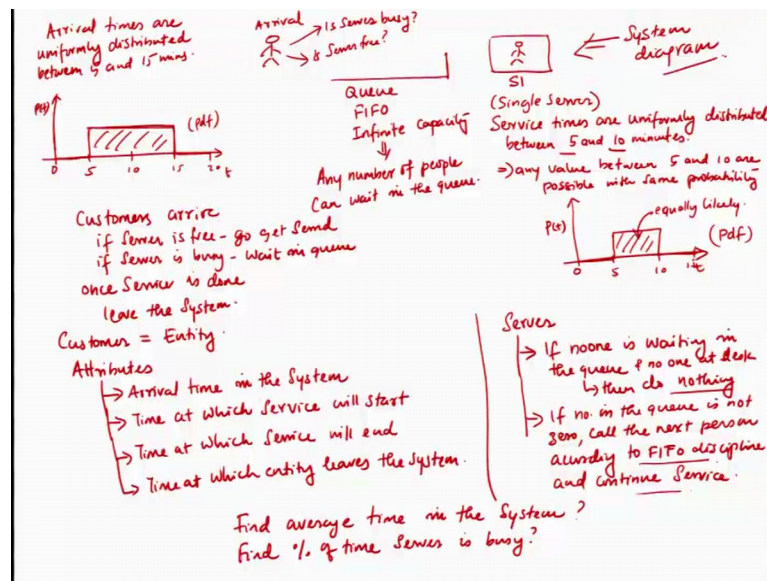 Arrival times are
uniformly distributed
between 5 and 15 mins.
P(t)
(pdf)
0 5 10 15 20 t
Arrival
Is Server busy?
Is Server free?
Queue
FIFO
Infinite capacity
Any number of people
Can wait in the queue.
S1
System
diagram
(Single Server)
Service times are uniformly distributed
between 5 and 10 minutes.
⇒ any value between 5 and 10 are
possible with same probability
equally likely.
P(t)
(Pdf)
0 5 10 t
Customers arrive
if Server is free - go get Served
if Server is busy - wait in queue
once Service is done
leave the System.
Customer = Entity.
Attributes
→ Arrival time in the System
→ Time at which Service will start
→ Time at which Service will end
→ Time at which entity leaves the System.
Server
→ If noone is waiting in
the queue & no one at desk
↳ then do nothing
→ If no. in the queue is not
zero, call the next person
according to FIFO discipline
and continue Service.
Find average time in the System?
Find % of time Server is busy?